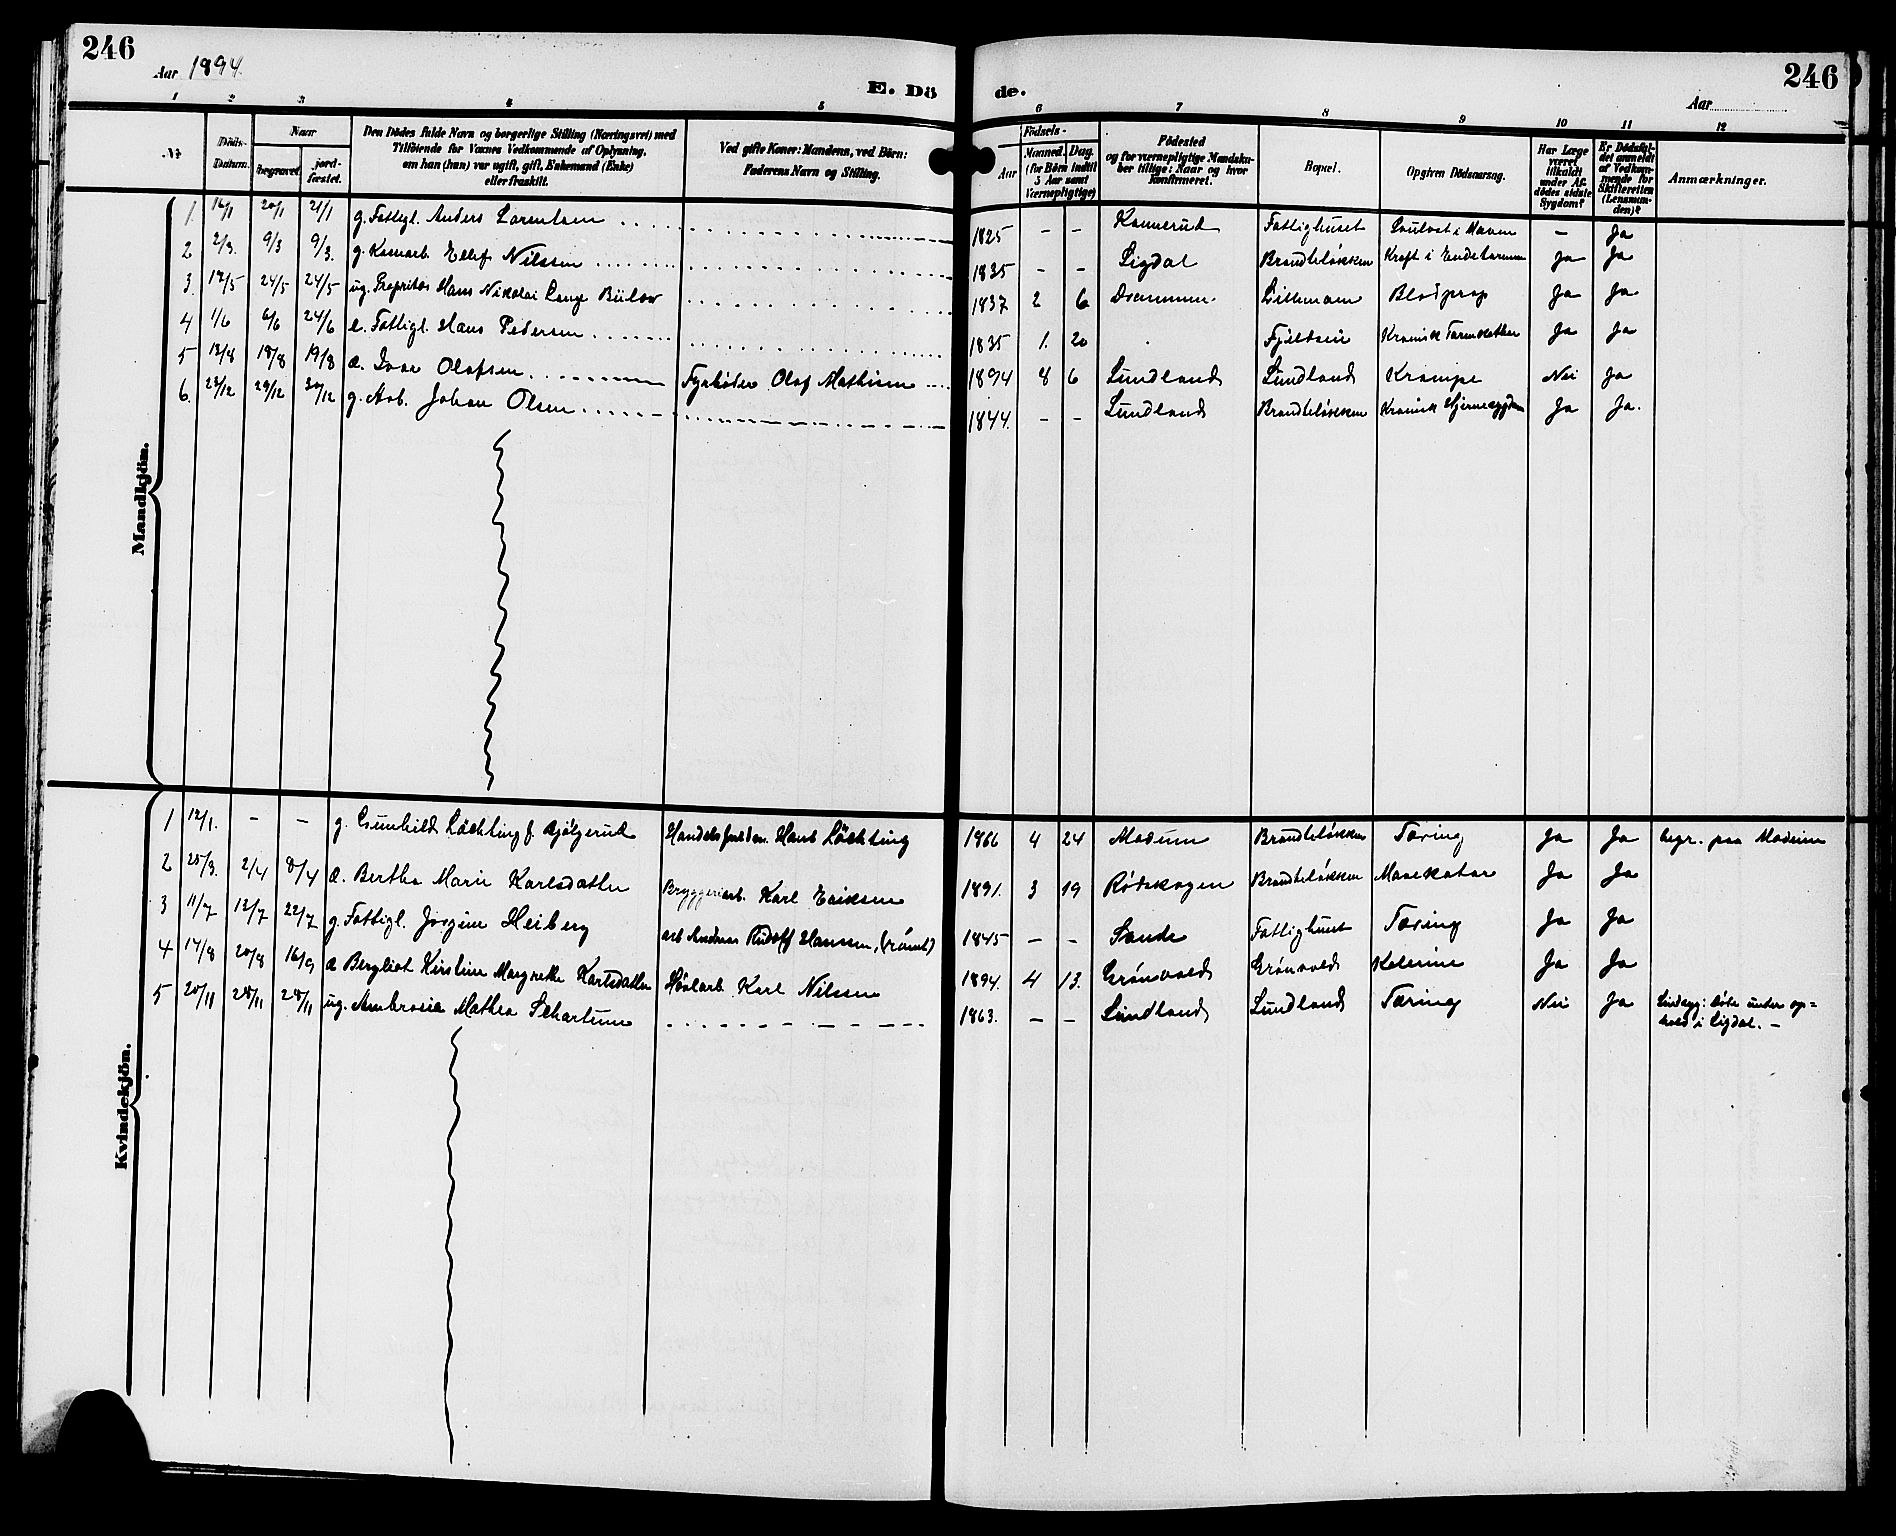 246
Aar 1894.
E. Dö
de.
246
Aar
1 2 3 4 5 6 7 8 9 10 11 12
Nr.
Döds-Datum.
Naar
begravet.
jord-fæstet.
Den Dödes fulde Navn og borgerlige Stilling (Næringsvei) med
Tilföiende for Voxnes Vedkommende af Oplysning,
om han (hun) var ugift, gift, Enkemand (Enke)
eller fraskilt.
Ved gifte Koner: Mandens, ved Börn:
Faderens Navn og Stilling.
Födsels-
Aar
Maaned. Dag.
(for Börn indtil
5 Aar samt
Værnepligtige)
Födested
og for værnepligtige Mandska-
ber tillige: Naar og hvor
konfirmeret.
Bopæl.
Opgiven Dödsaarsag.
Har Læge
været
tilkaldt
under Af-
dödes sidste
Sygdom?
Er Dödsfal-
det anmeldt
af Vedkom-
mende for
Skifteretten
(Lensman-
den)?
Anmærkninger.
Mandkjön.
1. 16/1 20/1 21/1 g. Fattigl. Anders Larentsen 1825 – – Komerud Fattighuset – Ja
2 2/3. 9/3 9/3. g. Ellef Nilssen 1835 – – Sigdal Brandteløkken Kræft i Endetarmen Ja Ja
3. 17/5 24/5 24/5 ug. Propritær Hans Nikolai Lange Bülow 1837 2 6 Drammen. Lillemoen Blodprop Ja Ja
4 1/6 6/6 24/6 e. Fattigl. Hans Pedersen 1835 1. 20 Kronisk Ja Ja
5 13/8 18/8 19/8 d. Ivar Olafsen Fyrbøder Olaf Mathisen 1894 8 6 Lundland Lundland Krampe Nei Ja
6. 23/12 29/12 30/12 g. Arb. Johan Olsen 1844. – – Lundland Brandteløkken Kronisk Hjernesygdom Ja Ja.
Kvindekjön.
1 12/1. – – g. Gunhild Löchting f. Gjölgerud Hans Löchting 1866 4 24 Modum Brandteløkken Tæring Ja Ja begr. paa Modum
2 25/3. 2/4 8/4 d. Bertha Marie Karlsdatter Bryggeriarb. Karl Eriksen 1891. 3 19 Rödskogen Brandteløkken Ja Ja
3 11/7 12/7 22/7 g. Fattigl. Jorgine Heiberg arb Andreas Rudolf Hansen, (rømt) 1845 – – Sande Fattighuset Tæring Ja Ja
4 17/8 20/8 16/9 d Bergliot Kirstine Margrethe Karlsdatter Høvlarb. Karl Nilssen 1894. 4 13. Grönvold Grönvold Kolerine Ja Ja
5 20/11 28/11 28/11 ug. Ambrosia Mathea Schartum 1863. – – Lundland Lundland Tæring Nei Ja Sindssyg: døde under op=
hold i Sigdal. –